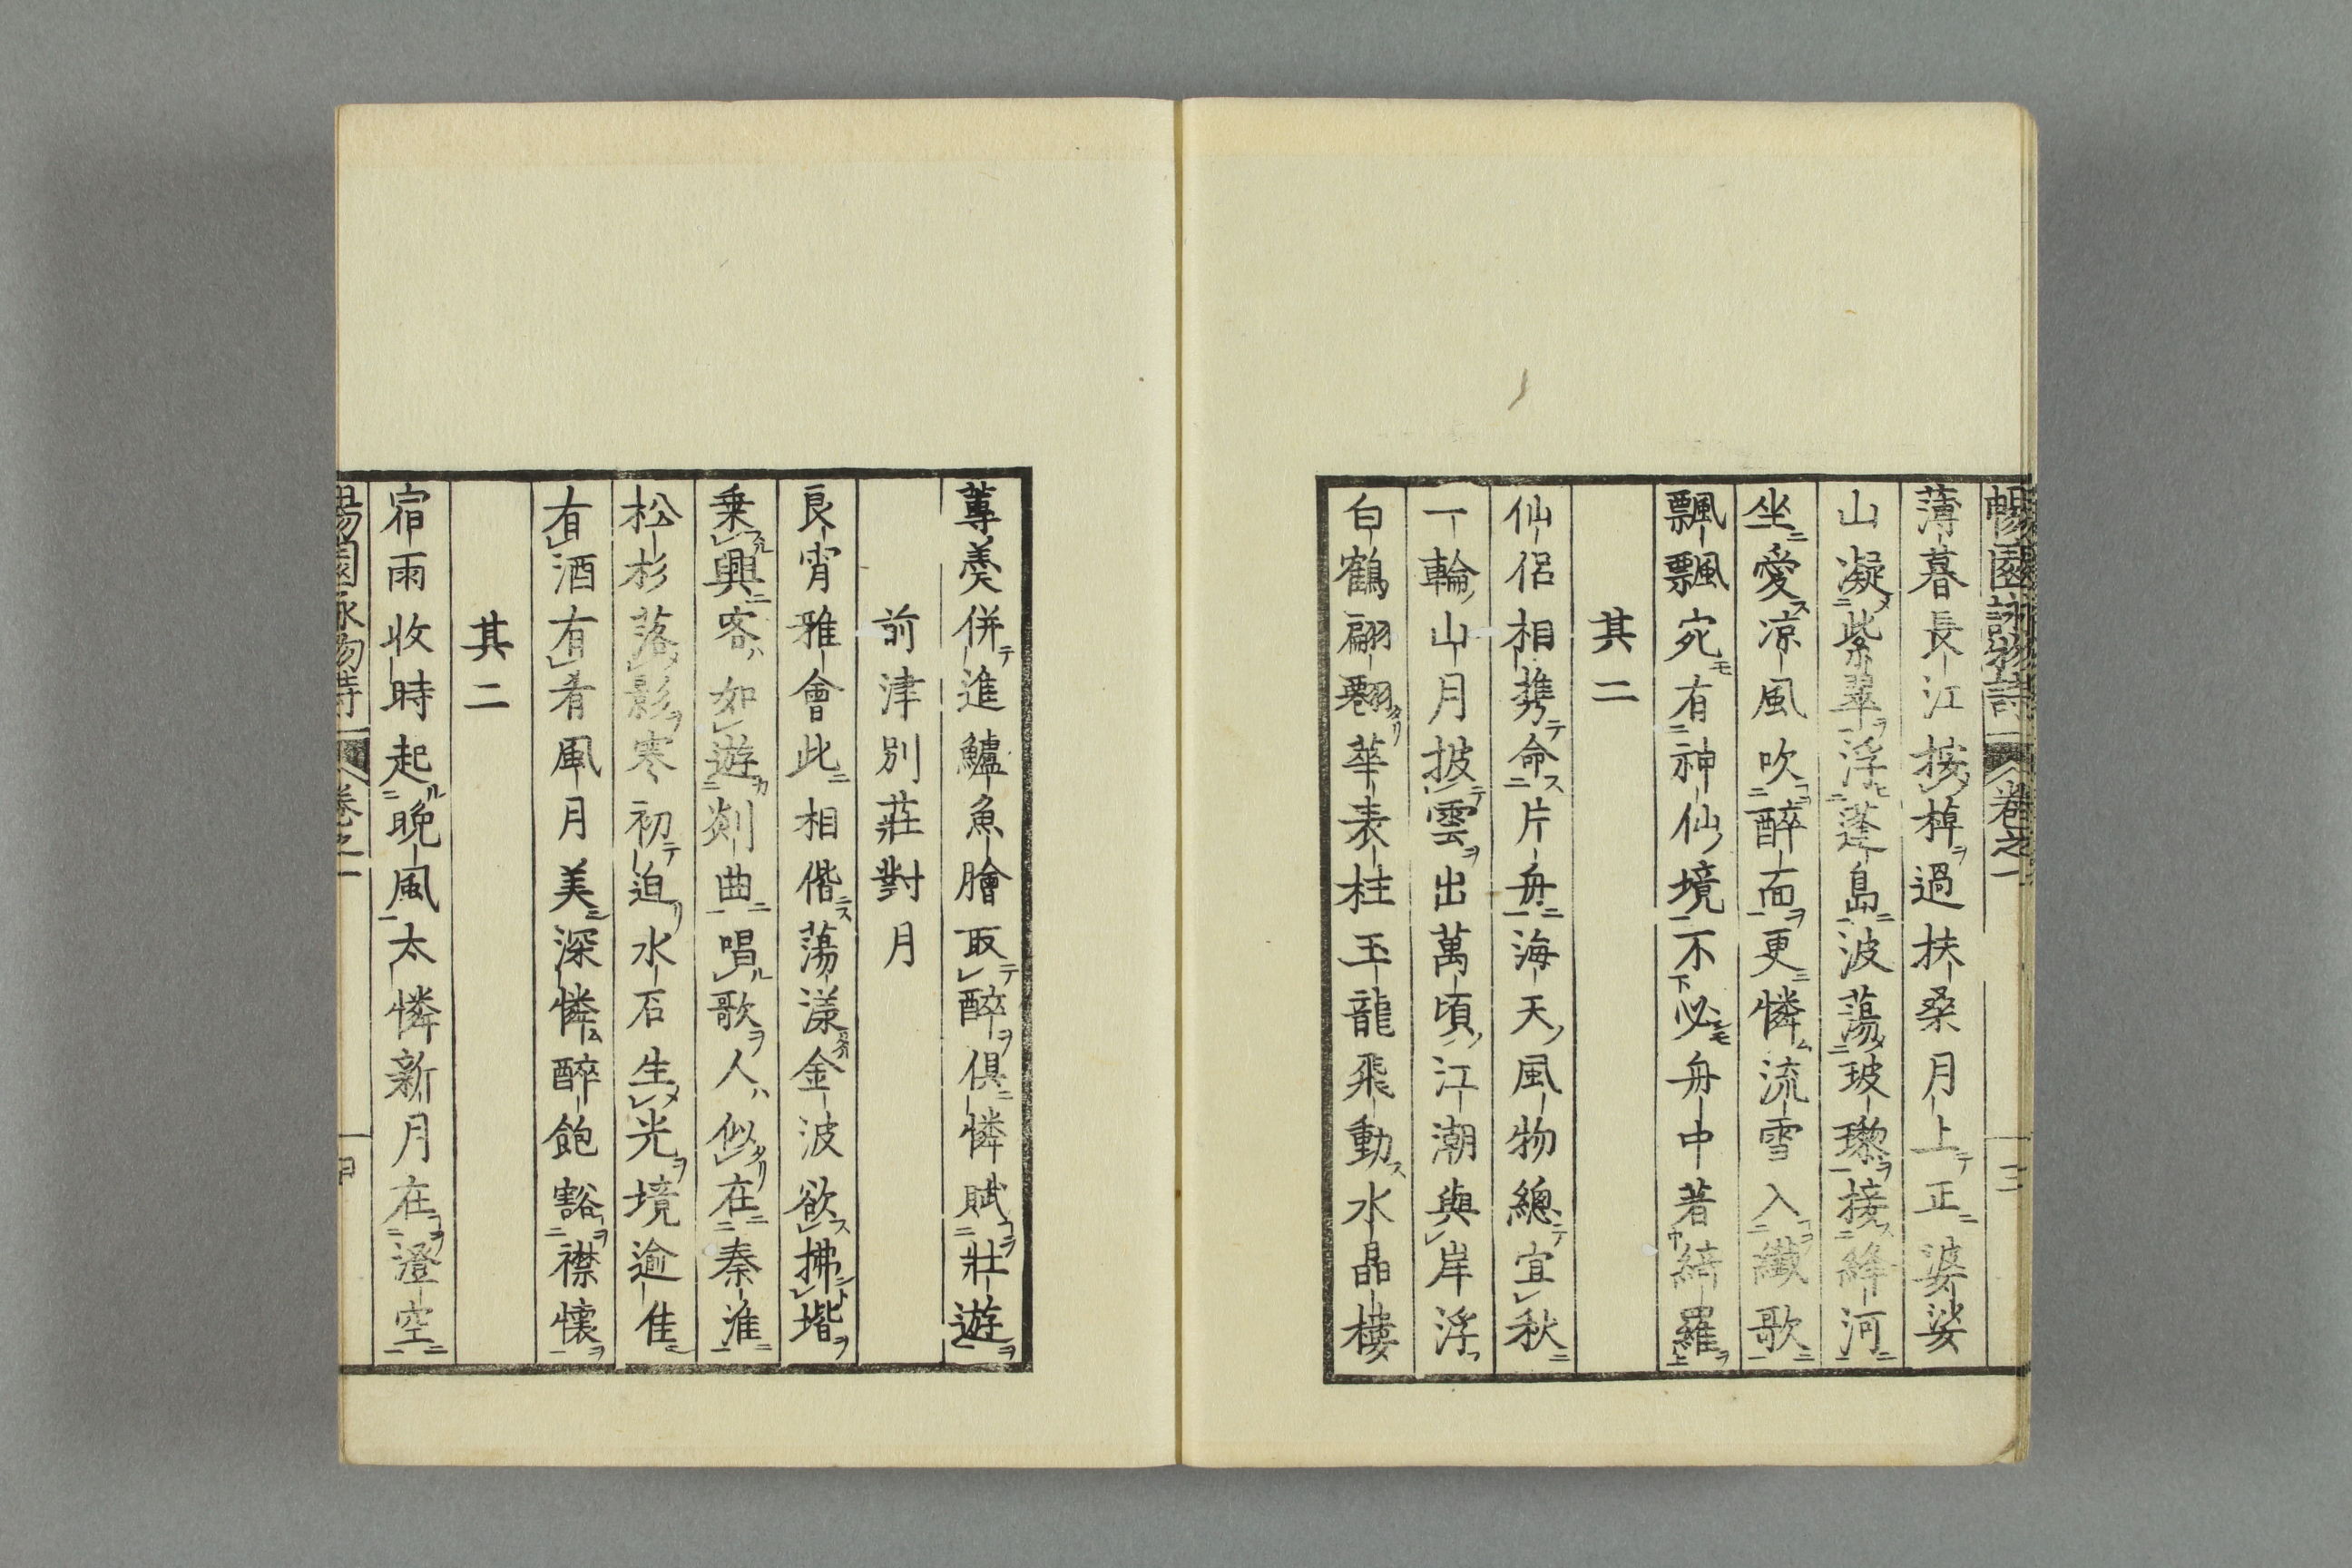 暢園詠物詩 卷之一 三
薄暮長江按棹過扶桑月上正婆娑
山凝紫翠浮蓬島波蕩玻瓈接絳河
坐愛凉風吹醉面更憐流雪入纖歌
飄飄宛有神仙境不必舟中著綺羅
其二
仙侶相携命片舟海天風物總宜秋
一輪山月披雲出萬頃江潮與岸浮
白鶴翩翻華表柱玉龍飛動水晶樓
蓴羹併進鱸魚膾取醉俱憐賦壯遊
前津別莊對月
良宵雅會此相偕蕩漾金波欲拂堦
乗興客如遊剡曲唱歌人似在秦淮
松杉落影寒初迫水石生光境逾佳
有酒有肴風月美深憐醉飽豁襟懷
其二
宿雨收時起晩風太憐新月在澄空
暢園詠物詩 卷之一